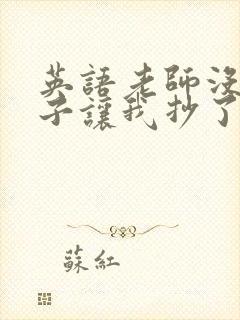 英語老師沒
子讓我抄了
蘇紅